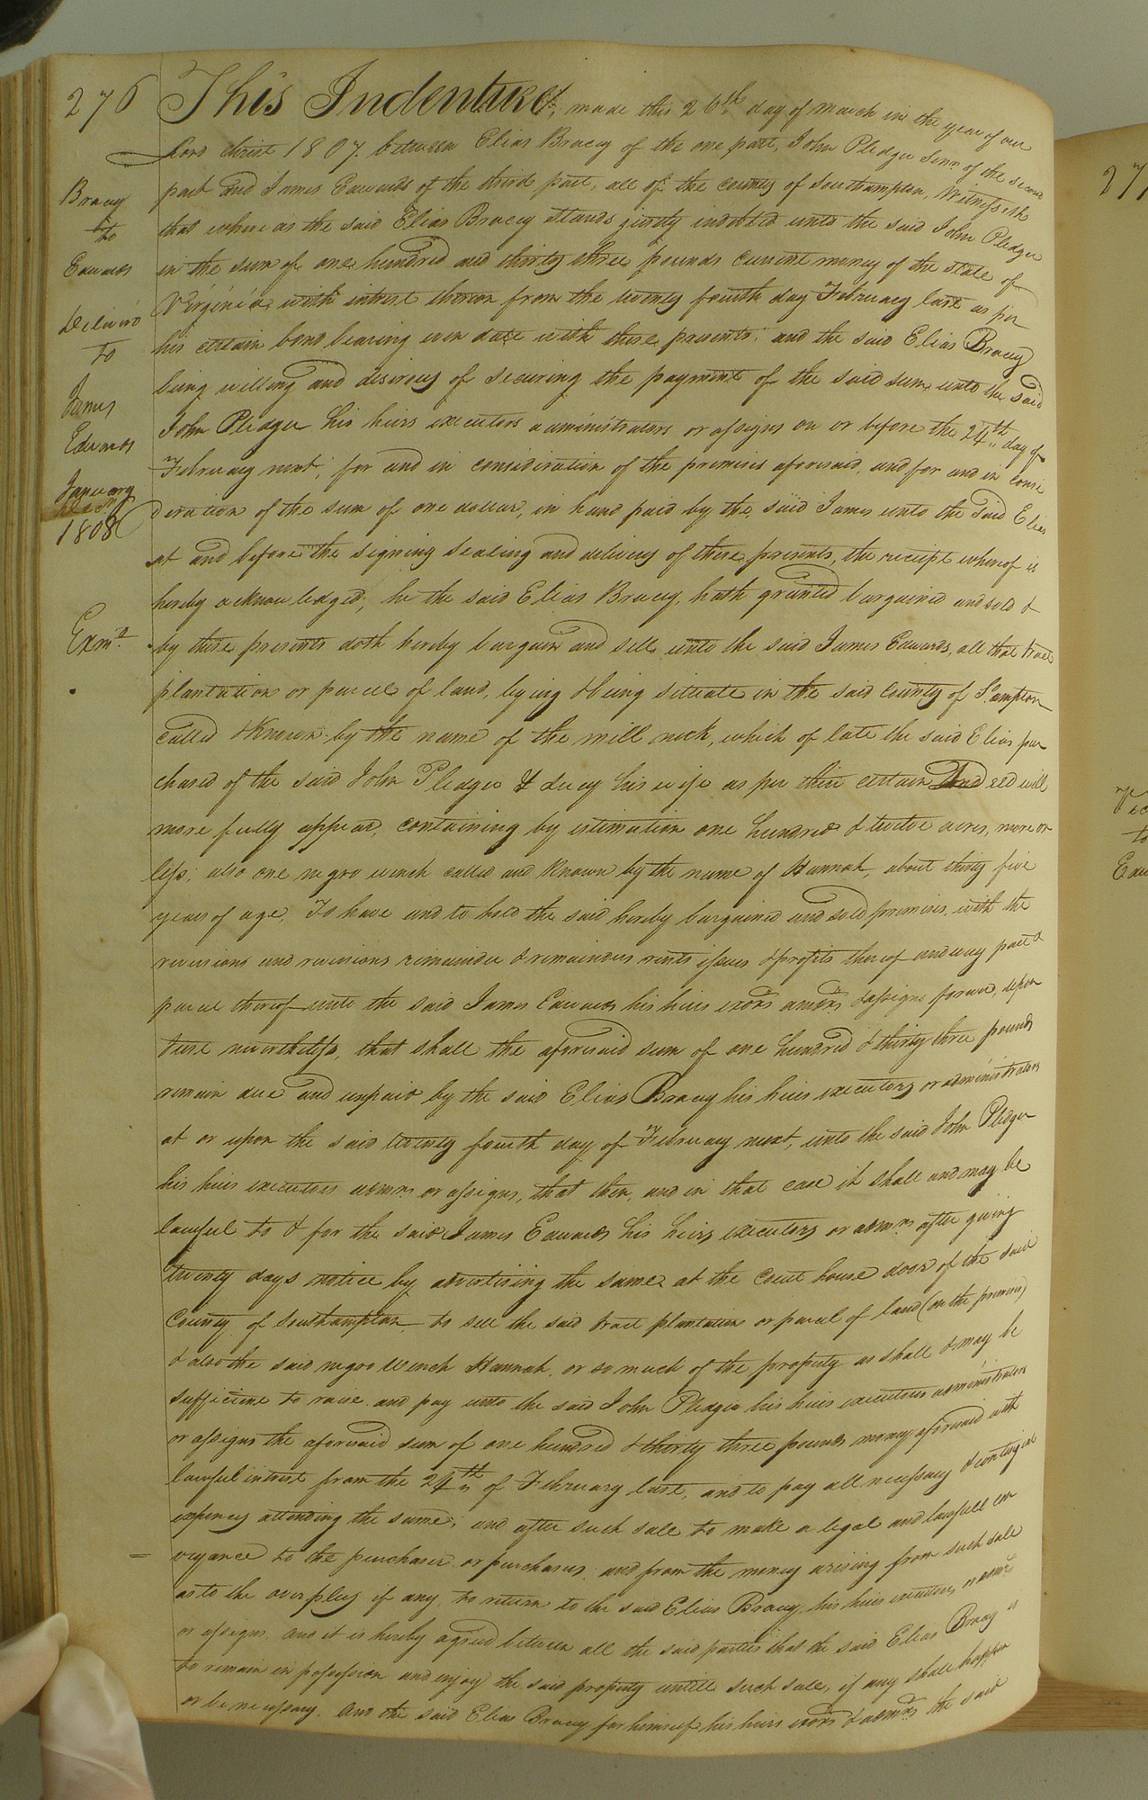 276
This Indenture, made this 26th day of March in the year of our
Lord Christ 1807. between Elias Bracey of the one part, John Pledger Senr. of the second
part and James Edwards of the third part, all of the county of Southampton, Witnesseth
that where as the said Elias Bracey stands justly indebted unto the said John Pledger
in the sum of one hundred and thirty three pounds current money of the state of
Virginia with intrest thereon from the twenty fourth day February last as per
his certain bond bearing even date with these presents; and the said Elias Bracey
being willing and desirous of securing the payment of the said sum unto the said
John Pledger his heirs executors administrators or assigns on or before the 24th day of
February next; for and in consideration of the premises aforesaid, and for and in consi
deration of the sum of one dollar, in hand paid by the said James unto the said Elias
at and before the signing sealing and delivery of these presents, the receipt whereof is
hereby acknowledged, he the said Elias Bracey, hath granted bargained and sold &
by these presents doth hereby bargain and sell unto the said James Edwards, all that tract
plantation or parcel of land, lying & being situate in the said county of S.ampton
called & known by the name of the mill neck, which of late the said Elias pur
chased of the said John Pledger & Lucy his wife as per their certain deed will
more fully appear, containing by estimation one hundred & twelve acres, more or
less; also one negro wench called and known by the name of Hannah about thirty five
years of age. To have and to hold the said hereby bargained and sold premises, with the
revisions and revisions remainder & remainders rents issues & profits thereof and evry part &
parcel thereof unto the said James Edwards his heirs exors admors & assigns forever, upon
trust nevertheless, that shall the aforesaid sum of one hundred & thirty three pounds
remain due and unpaid by the said Elias Bracey his heirs executors or administrators
at or upon the said twenty fourth day of February next, unto the said John Pledger
his heirs executors admrs or assigns, that then, and in that case it shall and may be
lawful to & for the said James Edwards his heirs executors or admrs after giving
twenty days notice by advertising the same at the court house door of the said
County of Southampton to sell the said tract plantation or parcel of land (on the premises)
& also the said negro wench Hannah, or so much of the property as shall & may be
sufficient to raise and pay unto the said John Pledger his heirs executors administrators
or assigns the aforesaid sum of one hundred & thirty three pounds money aforesaid with
lawful intrest from the 24th of February last, and to pay all necessary & contingent
expences attending the same; and after such sale to make a legal and lawfull con
veyance to the purchaser or purchasers, and from the money arising from such sale
as to the overplus if any, to return to the said Elias Bracey, his heirs executors or admrs
or assigns. And it is hereby agreed between all the said parties that the said Elias Bracey is
to remain in possession and enjoy the said property untill such sale, if any shall happen
or be necessary. And the said Elias Bracey for himself his heirs exors & admors the said
Bracey
to
Edwards
Delived
to
James
Edwards
January
1808
Exmd.